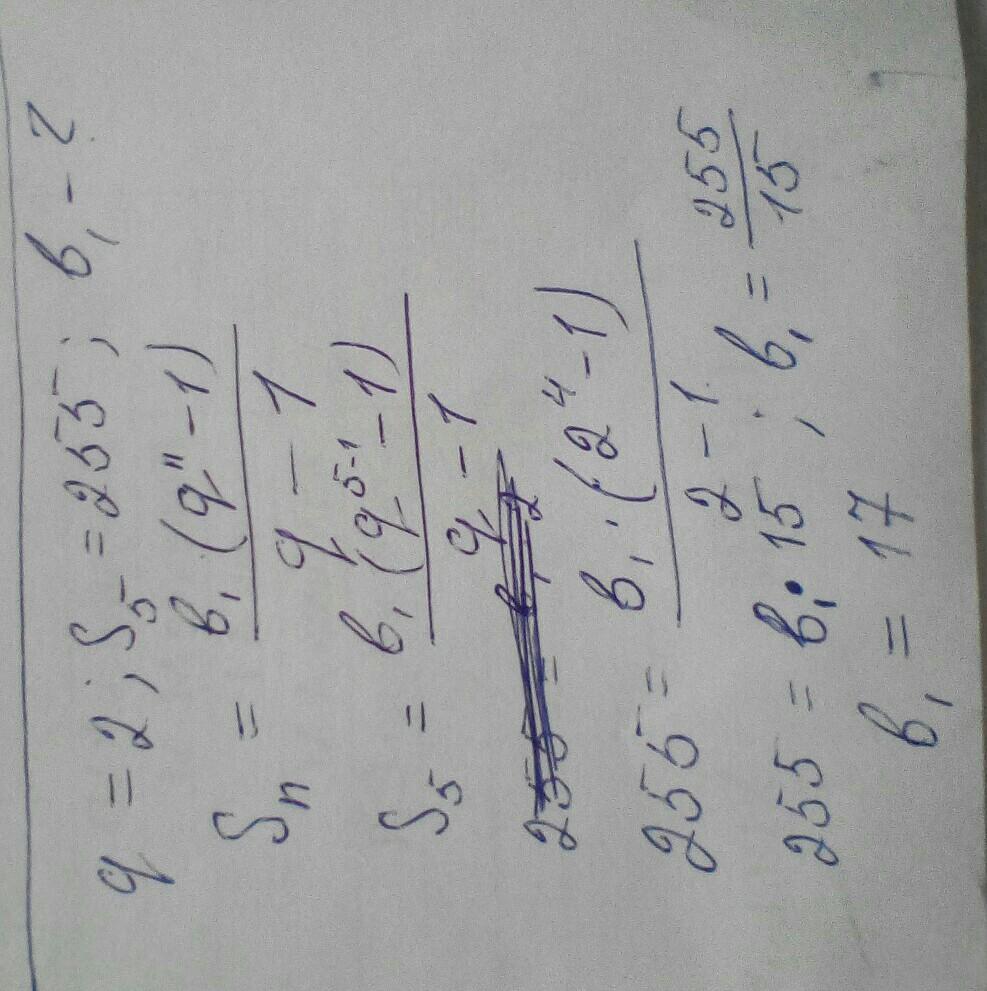 q = 2; S₅ = 255; b₁ - ?
Sₙ = b₁(qⁿ - 1) / q - 1
S₅ = b₁(q⁵⁻¹ - 1) / q - 1
255 = b₁ · (2⁴ - 1) / 2 - 1
255 = b₁ · 15; b₁ = 255 / 15
b₁ = 17